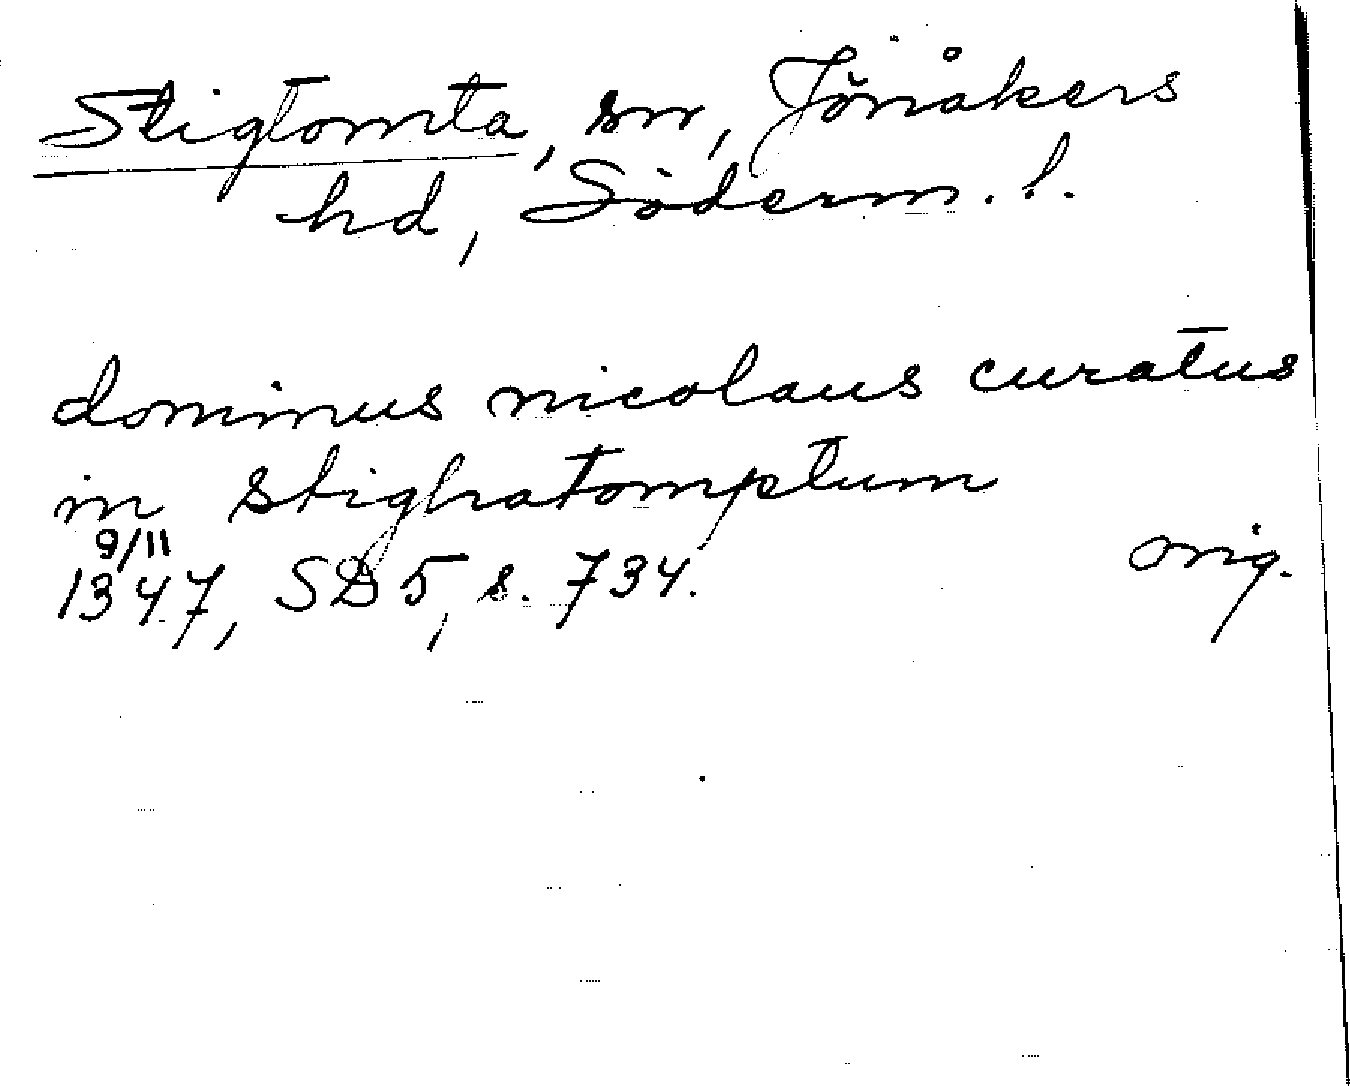 Stigtomta, sn, Jönåkers
hd, Söderm. l.
dominus nicolaus curatus
in stighatomptum
9/11
1347, SD 5, s. 734.
orig.